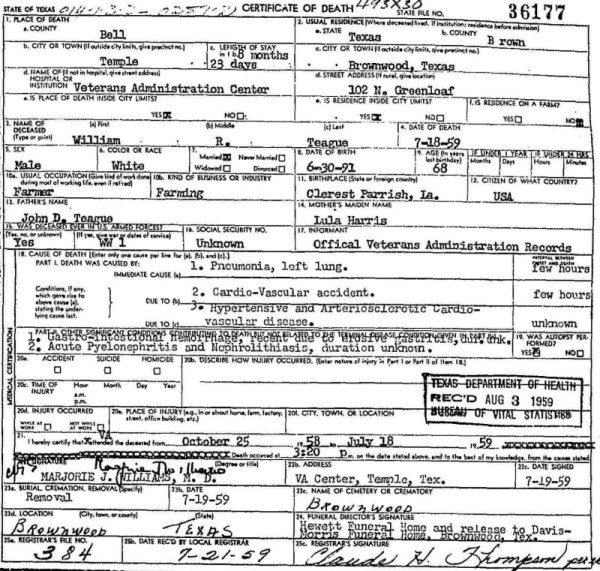 STATE OF TEXAS CERTIFICATE OF DEATH 493X30 STATE FILE NO. 36177
1. PLACE OF DEATH
a. COUNTY Bell
2. USUAL RESIDENCE (Where deceased lived. If institution: residence before admission)
a. STATE Texas b. COUNTY Brown
b. CITY OR TOWN (If outside city limits, give precinct no.) Temple
c. LENGTH OF STAY in 1b. 8 months 23 days
c. CITY OR TOWN (If outside city limits, give precinct no.) Brownwood, Texas
d. NAME OF (If not in hospital, give street address) HOSPITAL OR INSTITUTION Veterans Administration Center
d. STREET ADDRESS (If rural, give location) 102 N. Greenloaf
e. IS PLACE OF DEATH INSIDE CITY LIMITS? YES X NO
e. IS RESIDENCE INSIDE CITY LIMITS? YES X NO
f. IS RESIDENCE ON A FARM? YES NO
3. NAME OF DECEASED (Type or print) (a) First William (b) Middle R. (c) Last Teague
4. DATE OF DEATH 7-18-59
5. SEX Male
6. COLOR OR RACE White
7. Married X Never Married Widowed Divorced
8. DATE OF BIRTH 6-30-91
9. AGE (In years last birthday) 68
IF UNDER 1 YEAR Months Days
IF UNDER 24 HRS Hours Minutes
10a. USUAL OCCUPATION (Give kind of work done during most of working life, even if retired) Farmer
10b. KIND OF BUSINESS OR INDUSTRY Farming
11. BIRTHPLACE (State or foreign country) Clerest Parrish, La.
12. CITIZEN OF WHAT COUNTRY? USA
13. FATHER'S NAME John D. Teague
14. MOTHER'S MAIDEN NAME Lula Harris
15. WAS DECEASED EVER IN U.S. ARMED FORCES? (Yes, no, or unknown) Yes (If yes, give war or dates of service) WW 1
16. SOCIAL SECURITY NO. Unknown
17. INFORMANT Offical Veterans Administration Records
18. CAUSE OF DEATH [Enter only one cause per line for (a), (b), and (c).]
INTERVAL BETWEEN ONSET AND DEATH
PART I. DEATH WAS CAUSED BY:
IMMEDIATE CAUSE (a) 1. Pneumonia, left lung. few hours
Conditions, if any, which gave rise to above cause (a), stating the underlying cause last.
DUE TO (b) 2. Cardio-Vascular accident. few hours
DUE TO (c) 3. Hypertensive and Arteriosclerotic Cardio-vascular disease. unknown
PART II. OTHER SIGNIFICANT CONDITIONS CONTRIBUTING TO DEATH BUT NOT RELATED TO THE TERMINAL DISEASE CONDITION GIVEN IN PART I(a)
1. Gastro-Intestional Hemorrhage, recent due to erosive gastritis, dur. unk.
2. Acute Pyelonephritis and Nephrolithiasis, duration unknown.
19. WAS AUTOPSY PERFORMED? YES X NO
MEDICAL CERTIFICATION
20a. ACCIDENT SUICIDE HOMICIDE
20b. DESCRIBE HOW INJURY OCCURRED. (Enter nature of injury in Part I or Part II of Item 18.)
20c. TIME OF INJURY Hour a.m. p.m. Month Day Year
TEXAS DEPARTMENT OF HEALTH
REC'D AUG 3 1959
BUREAU OF VITAL STATISTICS
20d. INJURY OCCURRED WHILE AT WORK NOT WHILE AT WORK
20e. PLACE OF INJURY (e.g., in or about home, farm, factory, street, office building, etc.)
20f. CITY, TOWN, OR LOCATION
21. I hereby certify that VA attended the deceased from October 25 1958 to July 18 1959
Death occurred at 3:20 p.m. on the date stated above, and to the best of my knowledge, from the causes stated.
22a. SIGNATURE (Degree or title)
MARJORIE J. WILLIAMS, M. D.
22b. ADDRESS VA Center, Temple, Tex.
22c. DATE SIGNED 7-19-59
23a. BURIAL, CREMATION, REMOVAL (Specify) Removal
23b. DATE 7-19-59
23c. NAME OF CEMETERY OR CREMATORY BROWNWOOD
23d. LOCATION (City) BROWNWOOD (State) TEXAS
24. FUNERAL DIRECTOR'S SIGNATURE
Hewett Funeral Home and release to Davis-Morris Funeral Home, Brownwood, Tex.
25a. REGISTRAR'S FILE NO. 384
25b. DATE REC'D BY LOCAL REGISTRAR 7-21-59
25c. REGISTRAR'S SIGNATURE Claude H. Thompson